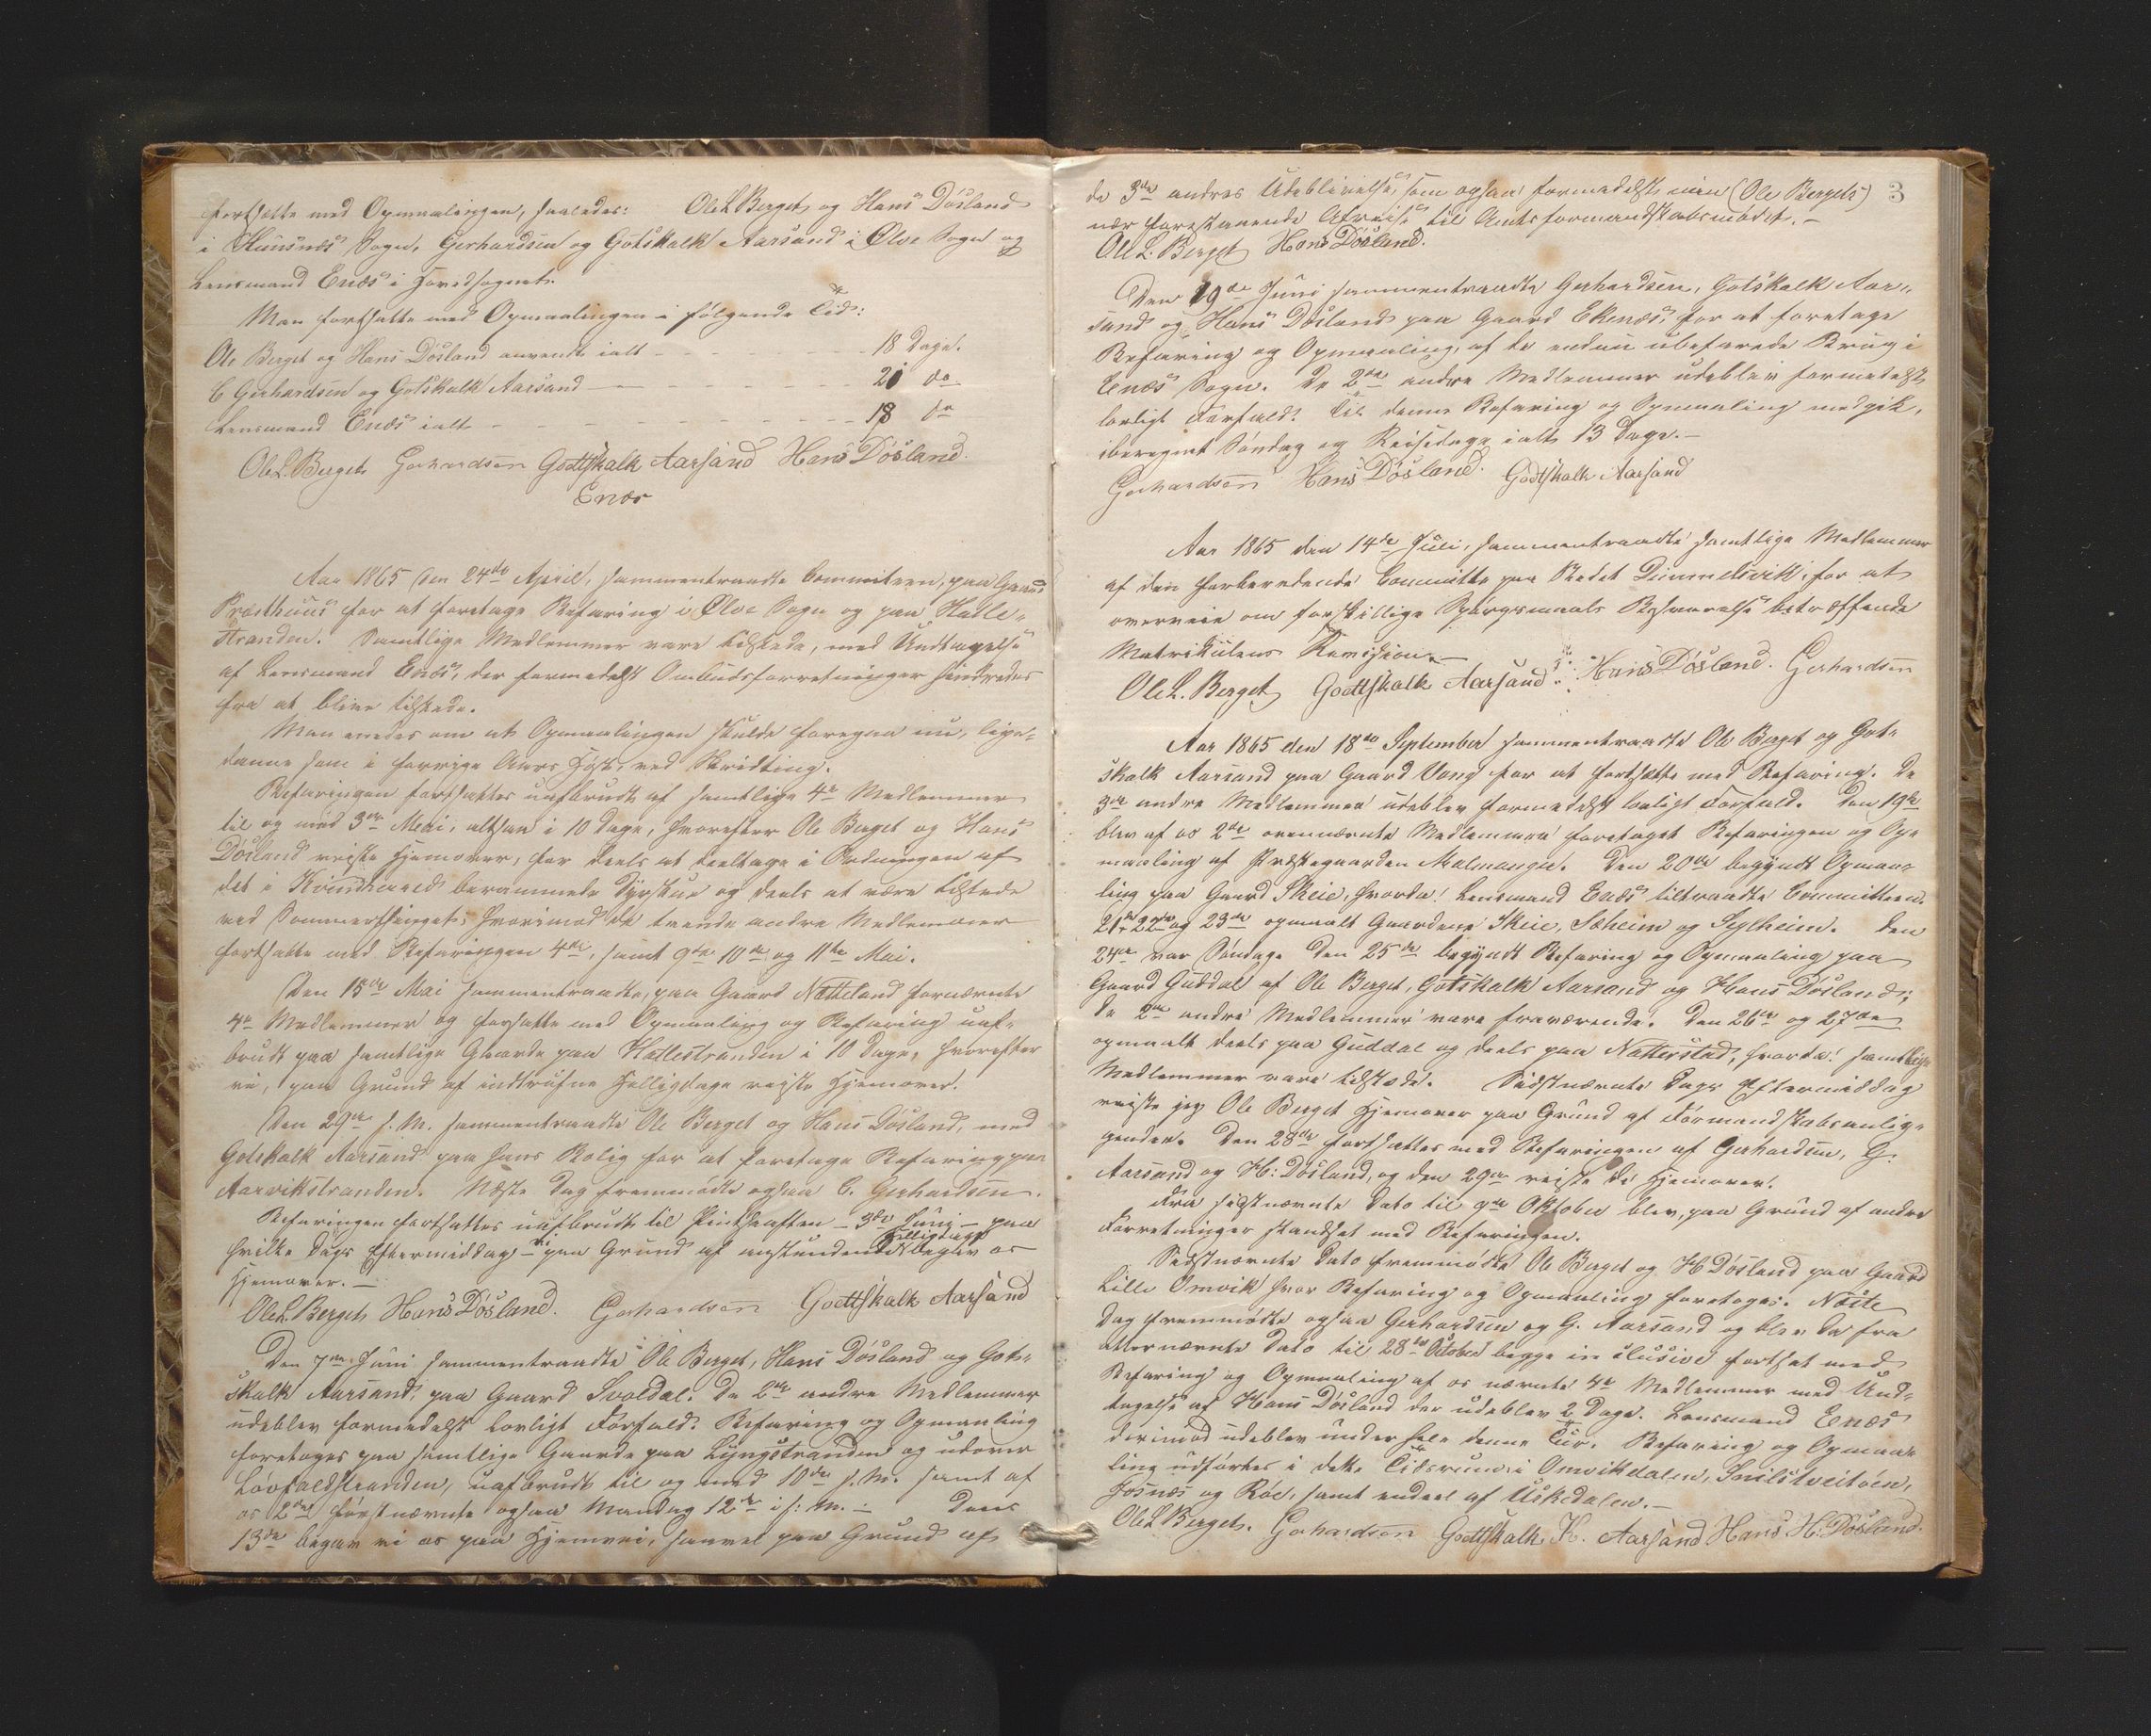 fortsatte med Opmaalingen, saaledes: Ole L Berget og Hans Døsland
i Huusnæs Sogn, Gerhardsen og Gotskalk Aarsand i Ølve Sogn og
Lensmand Enæs i Hovedsognet.
Man fortsatte med Opmaalingen i følgende Tid:
Ole Berget og Hans Døsland anvendte ialt - - - 18 Dage.
C Gerhardsen og Gotskalk Aarsand - - - 20 do
Lensmand Enæs ialt - - - 18 do
Ole L. Berget Gerhardsen Godtskalk Aarsand Hans Døsland.
Enæs
Aar 1865 den 24de April, sammentraadte Committeen, paa Gaard
Præsthuus for at foretage Befaring i Ølve Sogn og paa Hatle-
stranden. Samtlige Medlemmer vare tilstede, med Undtagelse
af Lensmand Enæs, der formedelst Ombudsforretninger hindredes
fra at blive tilstede.
Man enedes om at Opmaalingen skulde foregaa nu, lige-
danne som i forrige Aars Høst, ved Skridting.
Befaringen fortsattes uafbrudt af samtlige 4re Medlemmer
til og med 3die Mai, altsaa i 10 Dage, hvorefter Ole Berget og Hans
Døsland reiste hjemover, for deels at deeltage i Ordningen af
det i Kvindherred berammede Dyrskue og deels at være tilstede
ved Sommerthinget; hvorimod de tvende andre Medlemmer
fortsatte med Befaringen 4de, samt 9de 10de og 11te Mai.
Den 15de Mai sammentraadte, paa Gaard Nætteland fornævnte
4re Medlemmer og forsatte med Opmaaling og Befaring uaf-
brudt paa samtlige Gaarde paa Hatlestranden i 10 Dage, hvorefter
vi, paa Grund af indtrufne Helligdage reiste hjemover.
Den 29de s. M. sammentraadte Ole Berget og Hans Døsland, med
Gotskalk Aarsand paa hans Bolig for at foretage Befaring paa
Aarvikstranden. Næste Dag fremmødte ogsaa C. Gerhardsen.
Befaringen fortsattes uafbrudt til Pintseaften - 3die Juni - paa
hvilke Dags Eftermiddag - vi paa Grund af anstundende Helligdage begav os
hjemover. -
Ole L. Berget Hans Døsland. Gerhardsen Godtskalk Aarsand
Den 7de Juni sammentraadte Ole Berget, Hans Døsland og Gots-
skalk Aarsand, paa Gaard Svoldal. De 2de andre Medlemmer
udeblev formedelst lovligt Forfald. Befaring og Opmaaling
foretoges paa samtlige Gaarde paa Lyngstranden og udover
Løvfaldstranden, uafbrudt til og med 10de s. M. samt af
os 2de førstnævnte ogsaa Mandag 12te i s: M. - Dens
13de begav vi os paa Hjemvei, saavel paa Grund af
3
de 3de andres Udeblivelse, som ogsaa formedelst min (Ole Bergets)
nær forestaaende Afreise til Amtsformandskabsmødet. -
Ole L. Berget Hans Døsland.
Den 19de Juni sammentraadte Gerhardsen, Gotskalk Aar-
sand og Hans Døsland paa Gaard Ekenæs, for at foretage
Befaring og Opmaaling, af de endnu ubefarede Brug i
Enæs Sogn. De 2de andre Medlemmer udeblev formedelst
lovligt Forfald. Til denne Befaring og Opmaaling medgik,
iberegnet Søndag og Reisedage ialt 13 Dage. -
Gerhardsen Hans Døsland. Godtskalk Aarsand
Aar 1865 den 14de Juli, sammentraadte samtlige Medlemmer
af den forberedende Committe paa Stedet Dimmelsvik, for at
overveie om forskillige Spørgsmaals Besvarelse betræffende
Matrikulens Revision. -
Ole L. Berget Godtskalk Aarsand Hans Døsland. Gerhardsen
Aar 1865 den 18de September sammentraadte Ole Berget og Got-
skalk Aarsand paa Gaard Vang for at fortsætte med Befaring. De
3de andre Medlemmer udeblev formedelst lovligt Forfald. Den 19de
blev af os 2de ovennævnte Medlemmer foretaget Befaringen og Op-
maaling af Præstegaarden Malmanger. Den 20de begyndt Opmaa-
ling paa Gaard Skeie, hvorda Lensmand Enæs tiltraadte Committeen.
21de 22de og 23de opmaalt Gaardene Skeie, Sæheim og Seglheim. Den
24de var Søndag. Den 25de begyndt Befaring og Opmaaling paa
Gaard Guddal af Ole Berget, Gotskalk Aarsand og Hans Døsland;
De 2de andre Medlemmer vare fraværende. Den 26de og 27de
opmaalt deels paa Guddal og deels paa Nætterstad, hvorda samtlige
Medlemmer vare tilstede. Sidstnævnte Dags Eftermiddag
reiste jeg Ole Berget hjemover paa Grund af Formandskabsanlig-
gender. Den 28de fortsattes med Befaringen af Gerhardsen, G.
Aarsand og H: Døsland, og den 29de reiste de hjemover.
Fra sidstnævnte Dato til 9de Oktober blev, paa Grund af andre
Forretninger standset med Befaringen.
Sidstnævnte Dato fremmødte Ole Berget og H Døsland paa Gaard
Lille Omvik hvor Befaring og Opmaaling foretoges. Næste
Dag fremmødte ogsaa Gerhardsen og G. Aarsand og blev da fra
atternævnte Dato til 28de October begge inclusive fortsat med
Befaring og Opmaaling af os nævnte 4re Medlemmer med Und-
tagelse af Hans Døsland der udeblev 2 Dage. Lensmand Enæs
derimod udeblev under hele denne Tur. Befaring og Opmaa-
ling udførtes i dette Tidsrum i Omvikdalen, Snilstveitøen,
Fosnæs og Røe, samt endeel af Uskedalen. -
Ole L Berget. Gerhardsen Godtskalk K. Aarsand Hans H. Døsland.